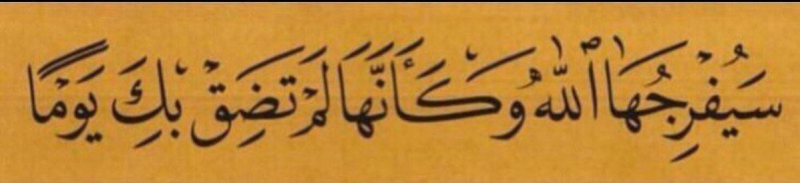 سَيُفْرِجُهَا ٱللَّهُ وَكَأَنَّهَا لَمْ تَضِقْ بِكِ يَوْمًا